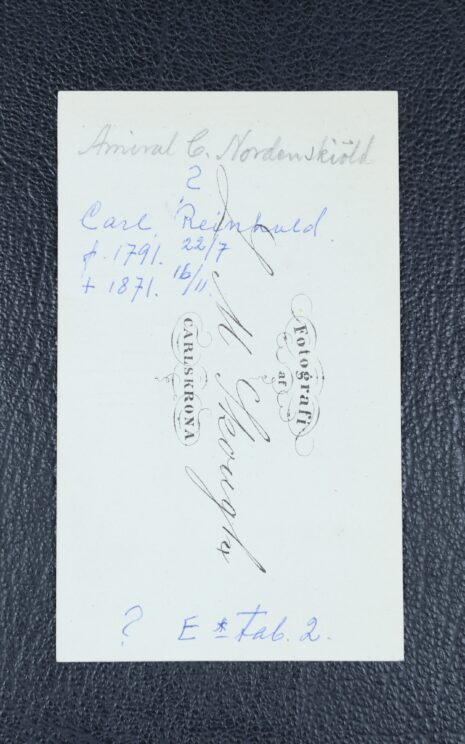 Amiral C. Nordenskiöld
?
Carl Reinhold.
f. 1791. 22/7
+ 1871. 16/11
Fotografi
af
M Skough
CARLSKRONA
? E * Tab. 2.